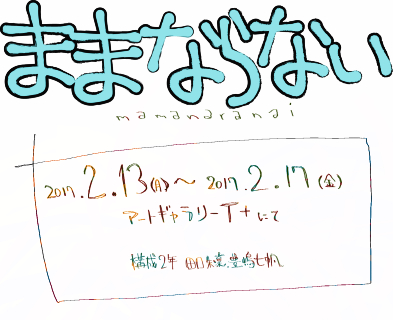 ままならない
mamanaranai
2017.2.13(月)〜 2017.2.17(金)
アートギャラリーT+にて
構成2年